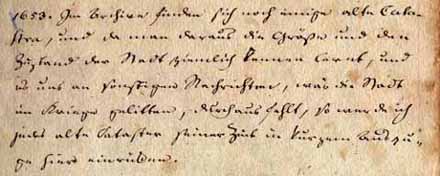 1653. Im Archive finden sich noch einige alte Cata-
stra, und da man daraus die Größe und den
Zustand der Stadt ziemlich kennen lernt, und
es uns an sonstigen Nachrichten, was die Stadt
im Kriege gelitten, durchaus fehlt, so werde ich
jedes alte Cataster seiner Zeit in kurzem Auszu-
ge hier einrücken.